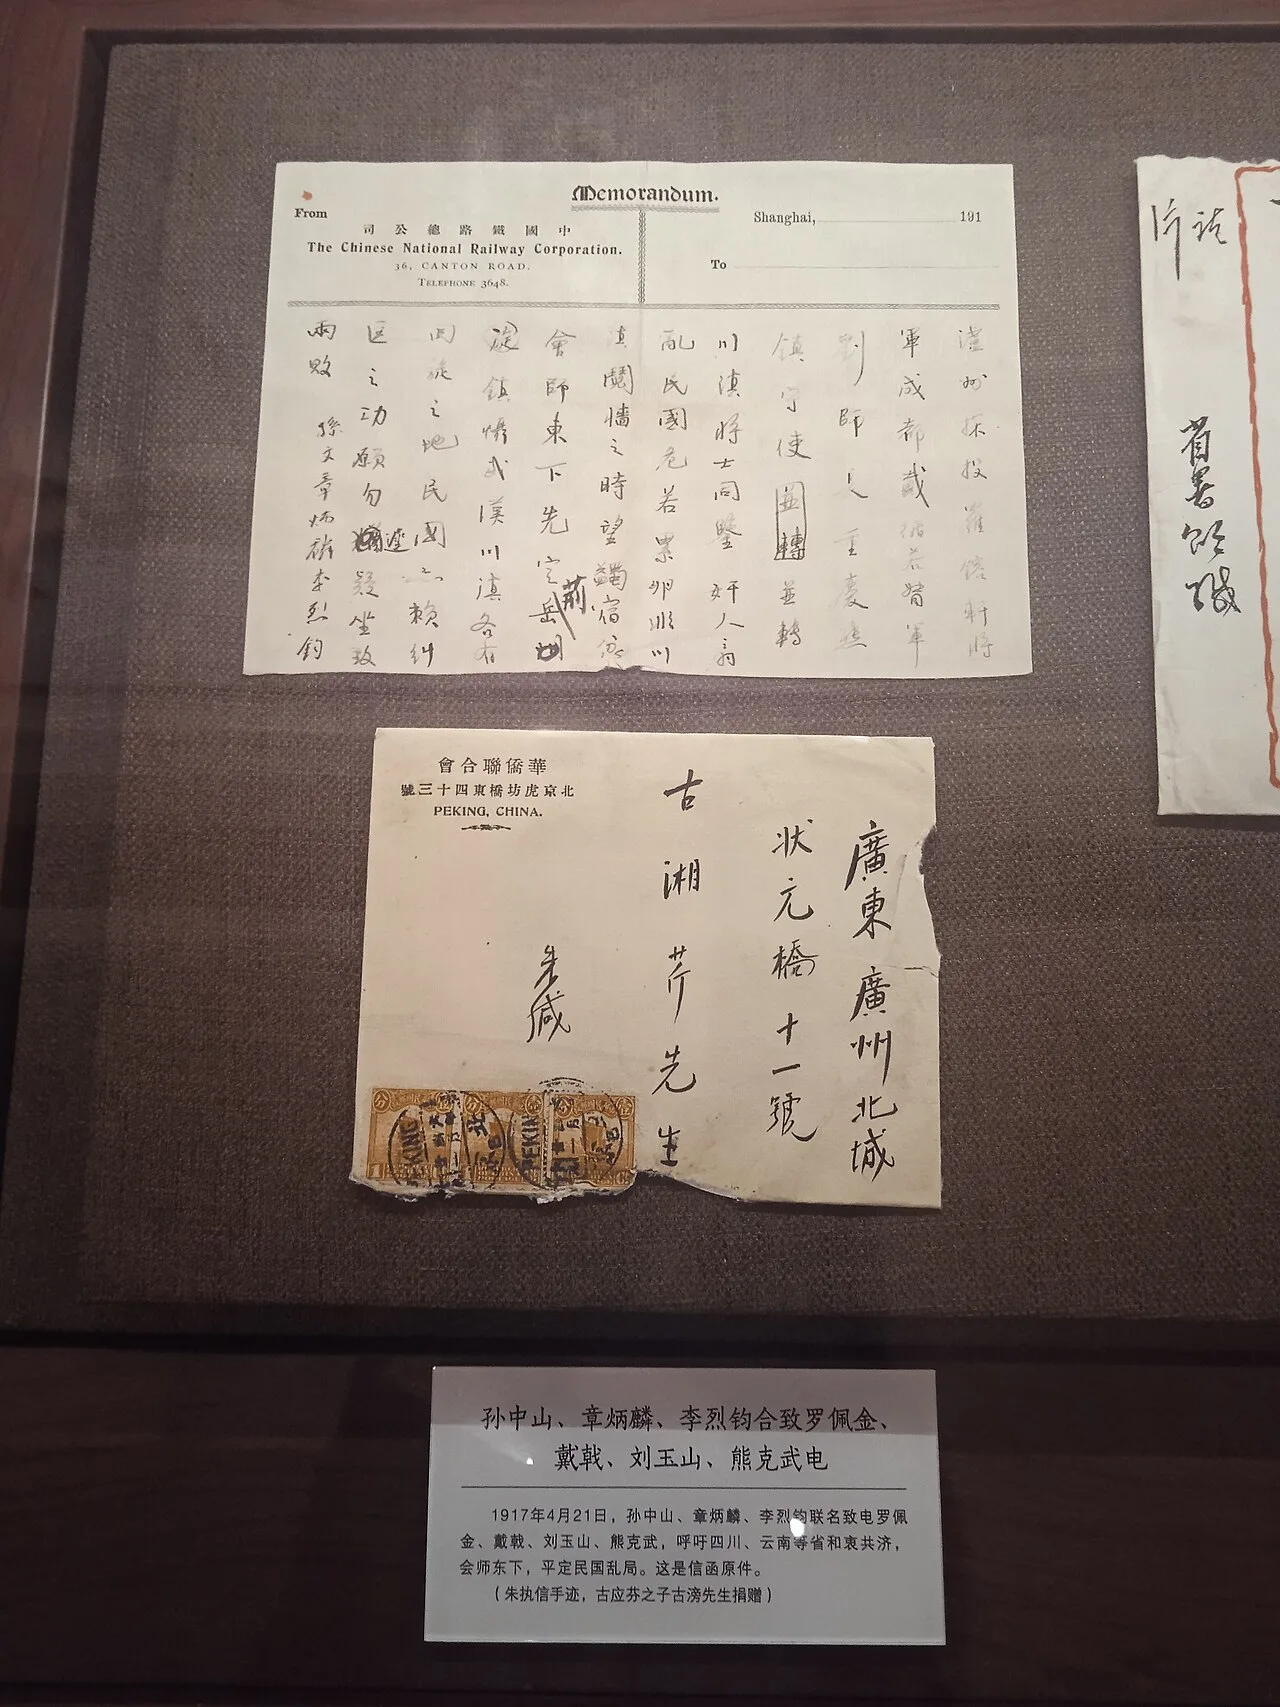 Memorandum.
From
司公總路鐵國中
The Chinese National Railway Corporation.
36, CANTON ROAD.
TELEPHONE 3648.
Shanghai, 191
To
瀘州探投羅鎔軒將
軍成都戴循若督軍
劉師長重慶熊
鎮守使並轉並轉
川滇將士同鑒奸人窃
亂民國危若累卵非川
滇鬩牆之時望蠲宿
會師東下先定荊岳
鎮懾武漢川滇各有
回旋之地民國亦賴糾
匡之功願勿遲疑坐致
兩敗 孫文章炳麟李烈鈞
會合聯僑華
號三十四東橋坊虎京北
PEKING, CHINA.
廣東廣州北城
狀元橋十一號
古湘芹先生
朱緘
PEKING
北
省署
孙中山、章炳麟、李烈钧合致罗佩金、
戴戟、刘玉山、熊克武电
1917年4月21日，孙中山、章炳麟、李烈钧联名致电罗佩
金、戴戟、刘玉山、熊克武，呼吁四川、云南等省和衷共济，
会师东下，平定民国乱局。这是信函原件。
（朱执信手迹，古应芬之子古滂先生捐赠）